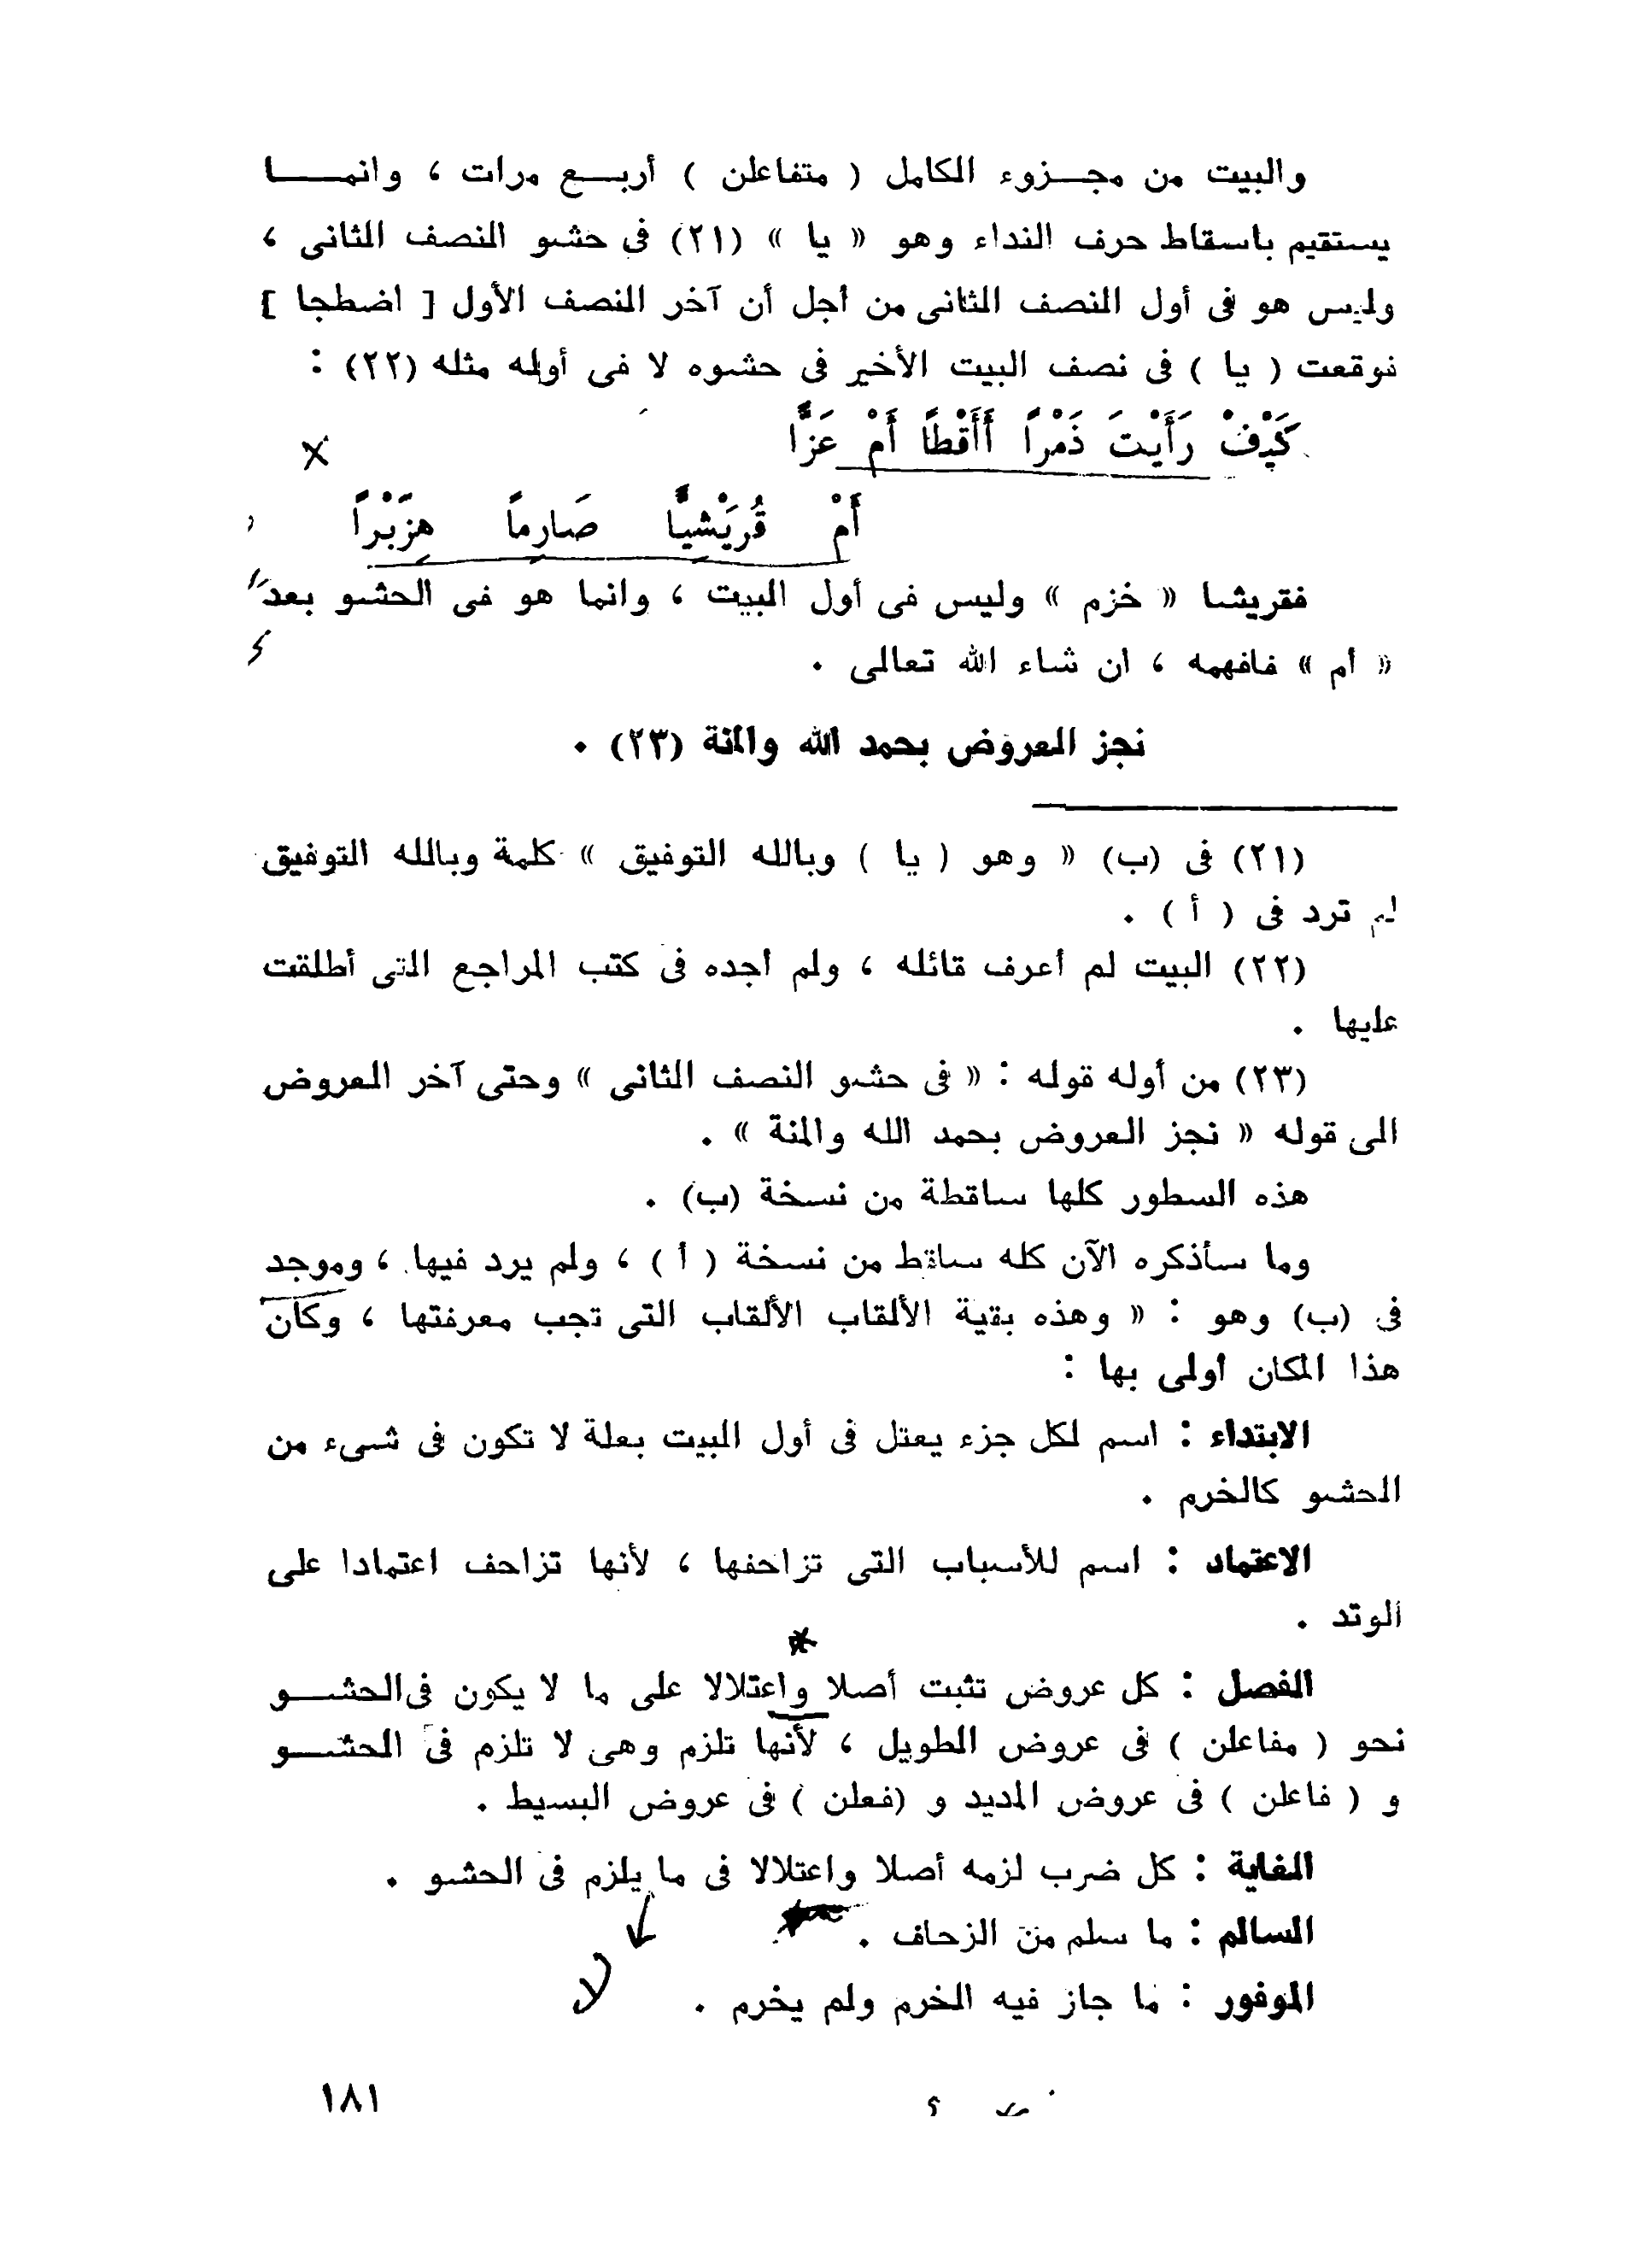 والبيت من مجـزوء الكامل ( متفاعلن ) أربـع مرات ، وانمـــا
يستقيم باسقاط حرف النداء وهو « يا » (٢١) فى حشو النصف الثانى ،
وليس هو فى أول النصف الثانى من أجل أن آخر النصف الأول [ اضطجا ]
فوقعت ( يا ) فى نصف البيت الأخير فى حشوه لا فى أوله مثله (٢٢) :
كَيْفْ رَأَيْتَ ذَمْرَاً أَأَقْطَاً أَمْ عَزَّاً
أَمْ قُرَيْشيَّاً صَارِمَاً هِزَبْرَاً
فقريشا « خزم » وليس فى أول البيت ، وانما هو فى الحشو بعد
« أم » فافهمه ، ان شاء الله تعالى .
نجز العروض بحمد الله والمنة (٢٣) .
(٢١) فى (ب) « وهو ( يا ) وبالله التوفيق » كلمة وبالله التوفيق
لم ترد فى ( أ ) .
(٢٢) البيت لم أعرف قائله ، ولم أجده فى كتب المراجع التى أطلقت
عليها .
(٢٣) من أوله قوله : « فى حشو النصف الثانى » وحتى آخر العروض
الى قوله « نجز العروض بحمد الله والمنة » .
هذه السطور كلها ساقطة من نسخة (ب) .
وما سأذكره الآن كله ساقط من نسخة ( أ ) ، ولم يرد فيها ، وموجد
فى (ب) وهو : « وهذه بقية الألقاب الألقاب التى تجب معرفتها ، وكان
هذا المكان أولى بها :
الابتداء : اسم لكل جزء يعتل فى أول البيت بعلة لا تكون فى شىء من
الحشو كالخرم .
الاعتماد : اسم للأسباب التى تزاحفها ، لأنها تزاحف اعتمادا على
الوتد .
الفصل : كل عروض تثبت أصلا واعتلالا على ما لا يكون فى الحشــو
نحو ( مفاعلن ) فى عروض الطويل ، لأنها تلزم وهى لا تلزم فى الحشــو
و ( فاعلن ) فى عروض المديد و (فعلن ) فى عروض البسيط .
الغاية : كل ضرب لزمه أصلا واعتلالا فى ما يلزم فى الحشو .
السالم : ما سلم من الزحاف .
لا
الموفور : ما جاز فيه الخرم ولم يخرم .
١٨١